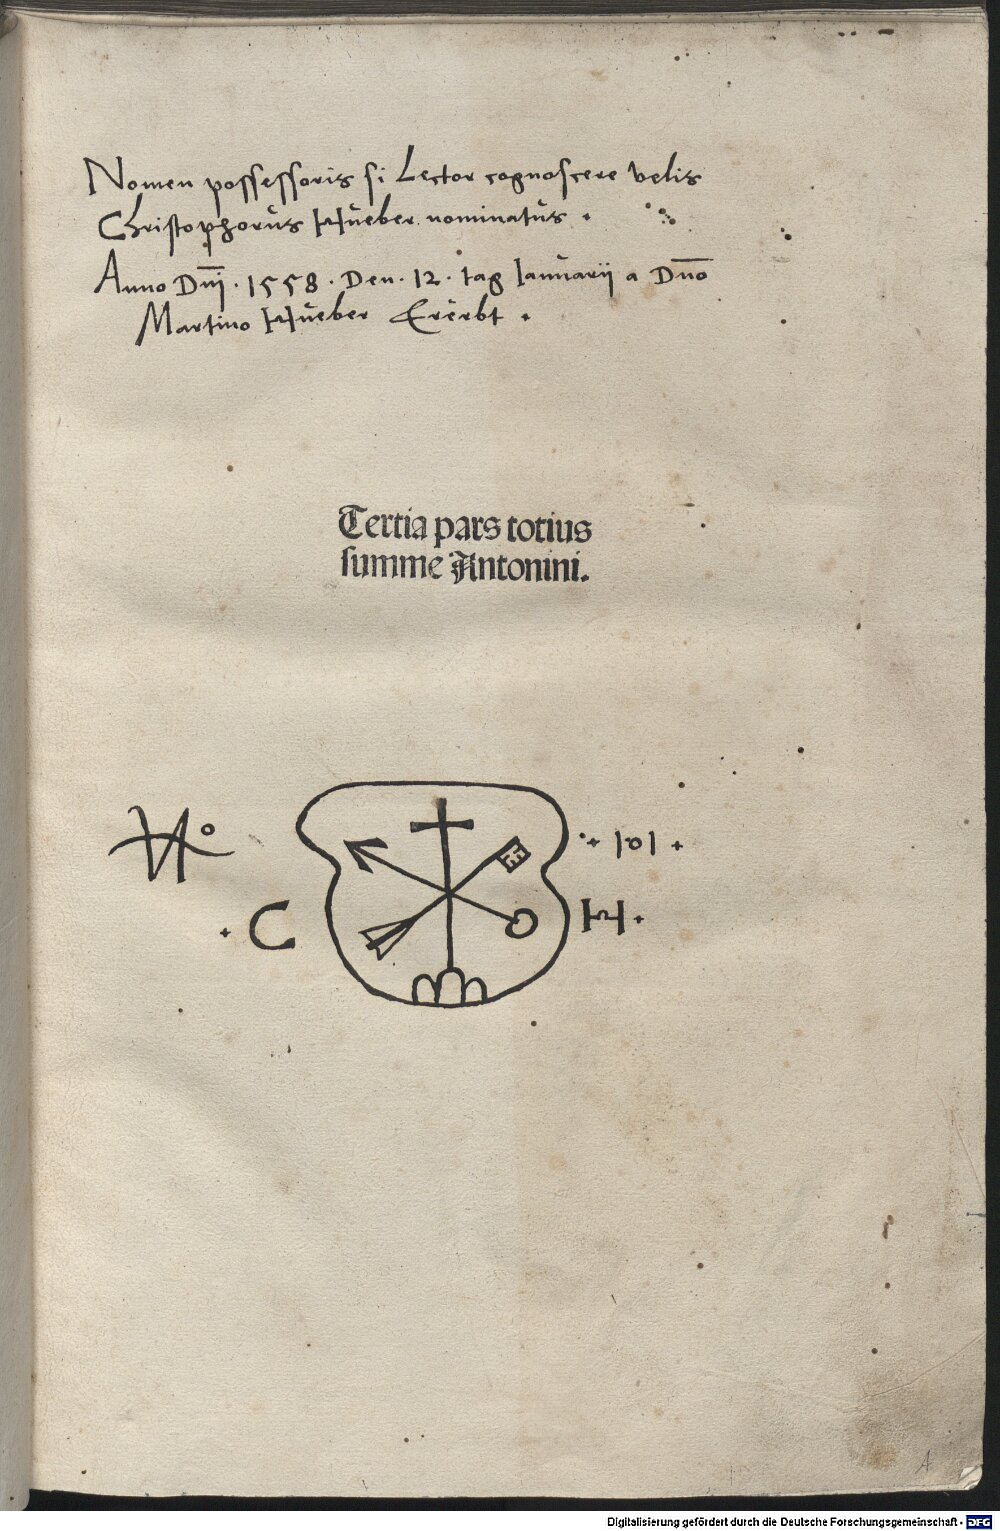 Nomen possessoris si Lector cognoscere velis
Christophorus Hueber nominatus .
Anno Dnj . 1558 . Den . 12 . tag Januarii a Dno
Martino Hueber Ererbt .
Tertia pars totius
summe Antonini.
C
H
A
Digitalisierung gefördert durch die Deutsche Forschungsgemeinschaft - DFG